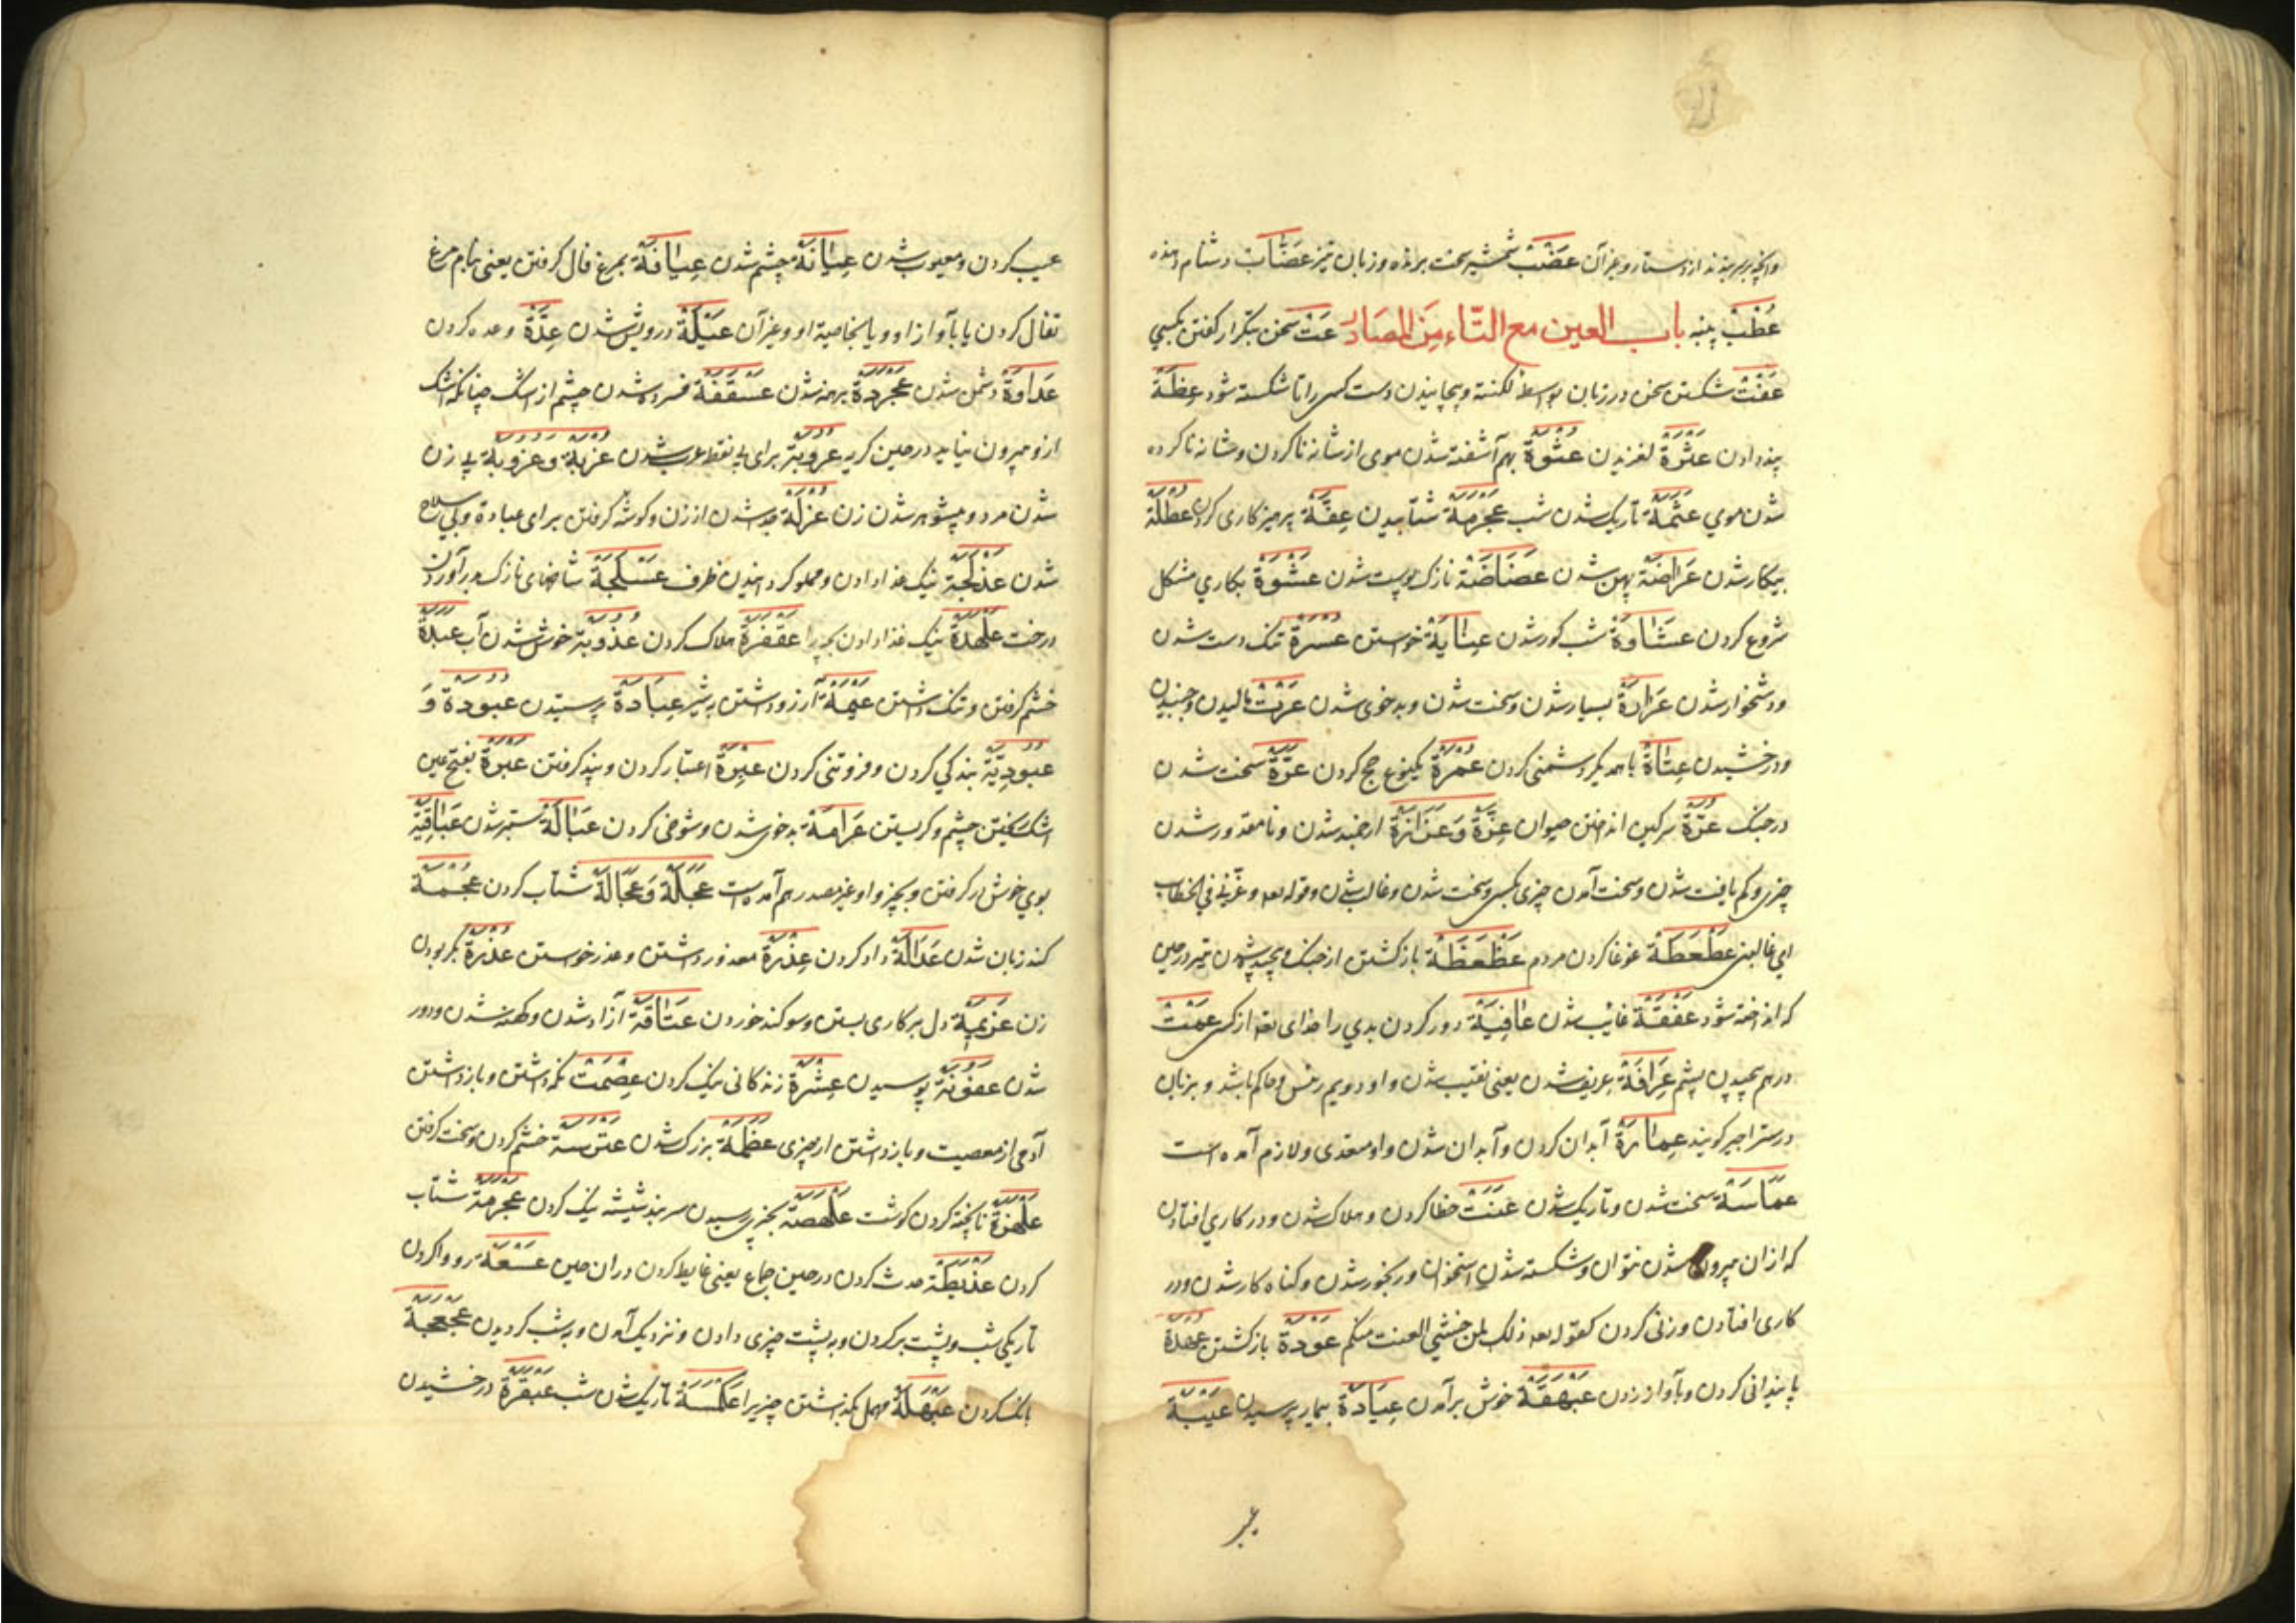 وآنچه بر سر بندند از دستار و غیر آن عَضْبْ شمشیر سخت برنده و زبان تیز عَضَّابْ دشنام دهنده
عُطْبْ پنبه باب العین مع التّاء مِنَ المصَادر عَتْ سخن بتکرار گفتن بکسی
عَفْتْ شکستن سخن در زبان بواسطهٔ لکنة و پیچانیدن دست کسی را تا شکسته شود عِظَةْ
پند دادن عَثْرَةْ لغزیدن عُثْوَةْ بهم آشفته شدن موی از شانه ناکردن و شانه ناکرده
شدن موی عَتَمَةْ تاریک شدن شب عَجْرَمَةْ شتابیدن عِفَّةْ پرهیزکاری کردن عُطْلَةْ
بیکار شدن عَرَاضَةْ پهن شدن عَضَاضَةْ نازک پوست شدن عَشْوَةْ بکاری مشکل
شروع کردن عَشَاوَةْ شب کور شدن عِنَایَةْ خواستن عُسْرَةْ تنک دست شدن
و دشخوار شدن عَرَادَةْ بسیار شدن و سخت شدن و بدخوی شدن عَرْتْ مالیدن و جنبیدن
و درخشیدن باهمدیکر دشمنی کردن عُمْرَةْ یکنوع حج کردن عَرَّةْ سخت شدن
در جنک عُرَّةْ سرکین انداختن حیوان عِزَّةْ وَعَزَازَةْ ارجمند شدن و نامقدور شدن
چیزی و کم یافت شدن و سخت آمدن چیزی بکسی و سخت شدن و غالب شدن و قوله تعه و عَزَّنِی فی الخطاب
ای غالبنی عَطْعَطَةْ غوغا کردن مردم عَظْعَظَةْ باز کشتن از جنک و پیچیده شدن تیر در حین
که انداخته شود عَفْقَةْ غایب شدن عَافِیَةْ دور کردن بدی را خدای تعه از کسی عَمْتْ
درهم پیچیدن پشم عِرَافَةْ عریف شدن یعنی نقیب شدن و او دویم رئیس و حاکم باشد و بزبان
عِمَارَةْ آبدان کردن و آبدان شدن و او متعدی و لازم آمده است
عَمَاسَةْ سخت شدن و تاریک شدن عَنَتْ خطا کردن و هلاک شدن و در کاری افتادن
که از ان بیرون شدن نتوان و شکسته شدن استخوان و رنجور شدن و کناه کار شدن و در
کاری افتادن و زنی کردن کقوله تعه ذلک لمن خشی العنت منکم عَوْدَةْ باز کشتن عُهْدَةْ
پایندانی کردن و بآواز زدن عَبْهَقَةْ خوش برآمدن عِیَادَةْ بیمار پرسیدن عَیْبَةْ
عیب کردن و معیوب شدن عِیَانَةْ چشم شدن عِیَافَةْ بمرغ فال کرفتن یعنی بنام مرغ
تفال کردن یا بآواز او و یا بخاصیة او و غیر آن عَیْلَةْ درویش شدن عِدَةْ وعده کردن
عَدَاوَةْ دشمن شدن عَجْرَدَةْ برهنه شدن عَسْقَفَةْ فسرده شدن چشم از اشک چنانکه اشک
ازو بیرون نیاید در حین کریه عُرُوبَةْ برای بی نقطه عرب شدن عُزْبَةْ وَعُزُوبَةْ بی زن
شدن مرد و بیشوهر شدن زن عُزْلَةْ جدا شدن از زن و کوشه کرفتن برای عبادة و بی سلاح
شدن عَذْلَجَةْ نیک غذا دادن و مملو کردانیدن ظرف عَسْلَجَةْ شاخهای نازک برآوردن
درخت عَلْهَدَةْ نیک غذا دادن بچه را عَقْفَرَةْ هلاک کردن عُذُوبَةْ خوش شدن آب عَبَدَةْ
خشم کرفتن و ننک داشتن عَیْمَةْ آرزو داشتن بشیر عِبَادَةْ پرستیدن عُبُودَةْ وَ
عُبُودِیَّةْ بندکی کردن و فروتنی کردن عِبْرَةْ اعتبار کردن و پند کرفتن عَبْرَةْ بفتح عین
چشم و کریستن عَرَامَةْ بدخوی شدن و شوخی کردن عَبَالَةْ ستبر شدن عَبَاقِیَةْ
بوی خوش در کرفتن و بچیز و او غیر مصدر هم آمده است عَجَلَةْ وَعَجَالَةْ شتاب کردن عُجْمَةْ
کند زبان شدن عَدَالَةْ داد کردن عِذْرَةْ معذور داشتن و عذر خواستن عُذْرَةْ بکر بودن
زن عَزِیمَةْ دل بر کاری بستن و سوکند خوردن عَتَاقَةْ آزاد شدن و کهنه شدن و دور
شدن عُفُونَةْ پوسیدن عِشْرَةْ زندکانی نیک کردن عِصْمَتْ نکه داشتن و باز داشتن
آدمی از معصیت و باز داشتن از چیزی عَظْمَةْ بزرک شدن عَتْرَسَةْ خشم کردن و سخت کرفتن
عَلْهَزَةْ ناپخته کردن کوشت عَلْهَصَةْ سربند شیشه نیک کردن عَجْرَمَةْ شتاب
کردن عَذْیَطَةْ حدث کردن در حین جماع یعنی غایط کردن در ان حین عَسْعَسَةْ
تاریکی شب و پشت بر کردن و به پشت چیزی دادن و نزدیک آمدن و بشب کردیدن عَجْعَجَةْ
بانک کردن عَبْهَلَةْ مهمل بگذاشتن چیزی را عَکْمَسَةْ تاریک شدن شب عَبْقَرَةْ درخشیدن